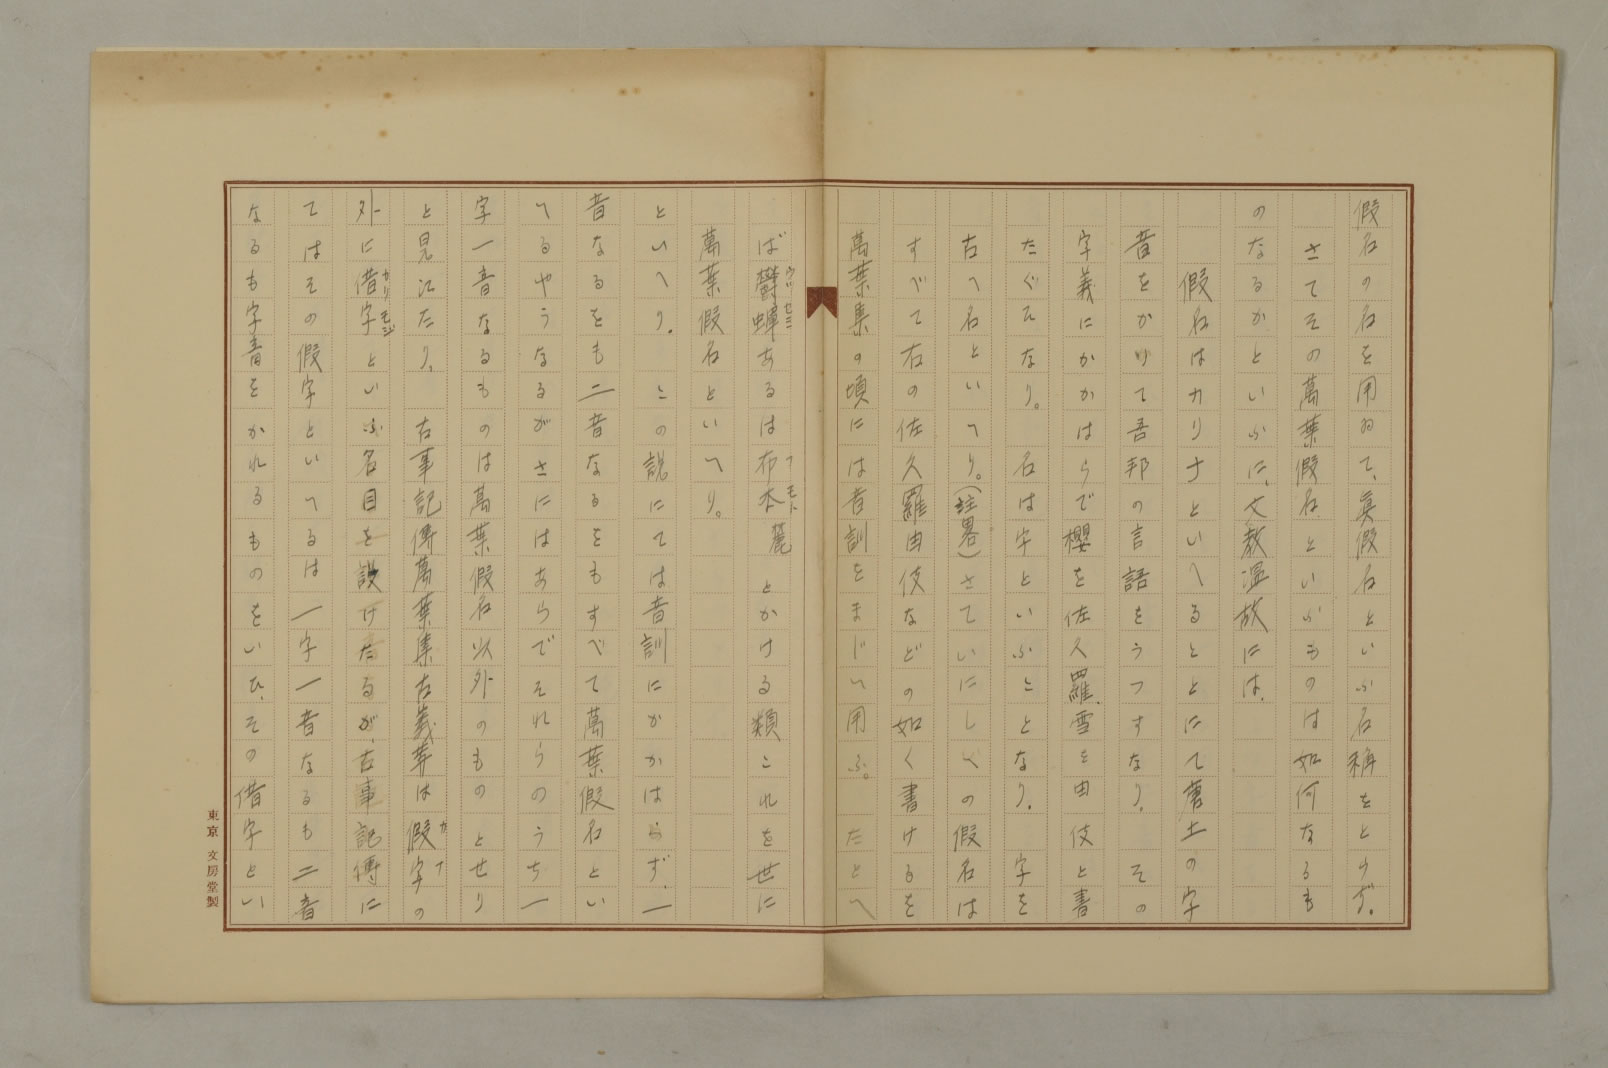 假名の名を用ゐて、眞假名といふ名稱をとらず。
さてその萬葉假名といふものは如何なるも
のなるかといふに、文教温故には、
假名はカリナといへることにて唐土の字
音をかりて吾邦の言語をうつすなり。その
字義にかかはらで櫻を佐久羅、雪を由伎と書
たぐひなり。名は字といふことなり。字を
古へ名といへり。(註畧)さていにしへの假名は
すべて右の佐久羅由伎などの如く書けるを
萬葉集の頃には音訓をまじへ用ふ。たとへ
ば欝蟬ウツセミあるは布本麓フモトとかける類これを世に
萬葉假名といへり。
といへり。この説にては音訓にかかはらず、一
音なるをも二音なるをもすべて萬葉假名とい
へるやうなるがさにはあらでそれらのうち一
字一音なるものは萬葉假名以外のものとせり
と見江たり。古事記傳萬葉集古義等は假字カナの
外に借字カリモジといふ名目を設けたるが、古事記傳に
てはその假字といへるは一字一音なるも二音
なるも字音をかれるものをいひ、その借字とい
東京 文房堂製